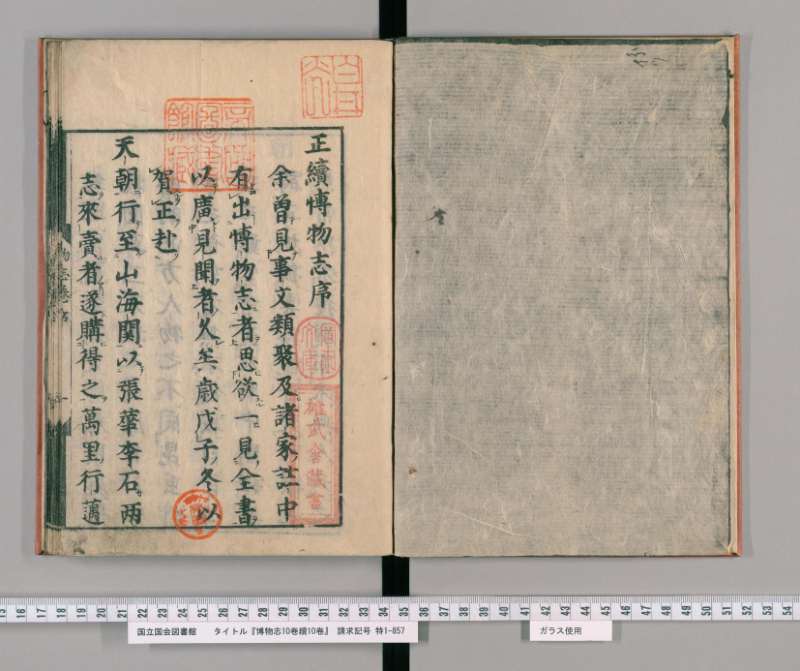 正續博物志序
余曾見事文類聚及諸家註中
有出博物志者思欲一見全書
以廣見聞者久矣歳戊子冬以
賀正赴
天朝行至山海関以張華李石兩
志來賣者遂購得之萬里行邁
国立国会図書館 タイトル『博物志10巻續10巻』 請求記号 特1-857
ガラス使用
15 16 17 18 19 20 21 22 23 24 25 26 27 28 29 30 31 32 33 34 35 36 37 38 39 40 41 42 43 44 45 46 47 48 49 50 51 52 53 54